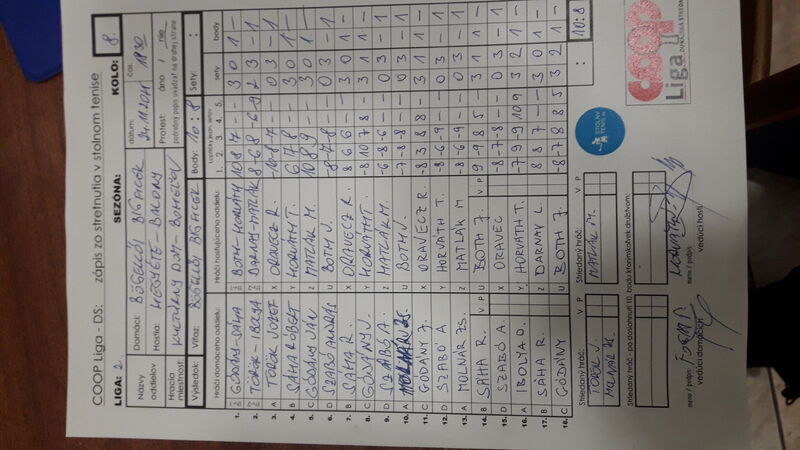 COOP Liga - DS: zápis zo stretnutia v stolnom tenise
LIGA: 2. SEZÓNA: KOLO: 8.
Názvy oddielov
Domáci: BÖGELLŐ BIG FICEK
Hostia: HEGYÉTE - BACONY
dátum: 24.11.2021
čas: 18:30
Hracia miestnosť: KULTÚRNY DOM - BOHEĽOV
Protest: áno / nie
podrobný popis uvádzať na druhej strane
Výsledok Víťaz: BÖGELLŐ BIG FICEK Body: 10 : 8 Sety: :
Hráči domáceho oddielu: Hráči hosťujúceho oddielu: 1. 2. 3. 4. 5. sety body
1. GÓDÁNY - SÁHA BOTH - HORVÁTH 10 8 7 - - 3 0 1 -
2. TÖRÖK - DARNAY - MATLÁK
3. A TÖRÖK JOZEF X ORAVECZ R. -10 -8 -7 - - 0 3 - 1
4. B SÁHA RÓBERT Y HORVÁTH T. 6 7 8 - - 3 0 1 -
5. C GÓDÁNY JÁN Z MATLÁK M. 10 8 9 - - 3 0 1 -
6. D SZABÓ ANDRÁS U BOTH J. -8 -7 -8 - - 0 3 - 1
7. B SÁHA R. X ORAVECZ R. 8 6 6 - - 3 0 1 -
8. C GÓDÁNY J. Y HORVÁTH T. -8 10 7 8 - 3 1 1 -
9. D SZABÓ A. Z MATLÁK M. -6 -8 -6 - - 0 3 - 1
10. A U BOTH J. -7 -8 -8 - - 0 3 - 1
11. C GÓDÁNY J. X ORAVECZ R. -8 3 8 8 - 3 1 1 -
12. D SZABÓ A Y HORVÁTH T. -8 -6 -9 - - 0 3 - 1
13. A MOLNÁR ZS. Z MATLÁK M -8 -6 -9 - - 0 3 - 1
14. B SÁHA R. V P U BOTH J. V P 9 -9 8 5 - 3 1 1 -
15. D SZABÓ A. X ORAVEC -8 -7 -8 - - 0 3 - 1
16. A IBOLYA O. Y HORVÁTH T. -7 9 -9 10 9 3 2 1 -
17. B SÁHA R. Z DARNAY L. 8 8 7 - - 3 0 1 -
18. C GÓDÁNY U BOTH J. -8 -7 8 8 5 3 2 1 -
Striedaný hráč: V P Striedaný hráč: V P : 10:8
TÖRÖK J. MATLÁK M.
MOLNÁR ZS.
Striedaný hráč po dosiahnutí 10. bodu ktorýmkoľvek družstvom:
meno / podpis
vedúci domácich
meno / podpis
vedúci hostí
STOLNÝ TENIS
COOP
Liga
DUNAJSKÁ STREDA